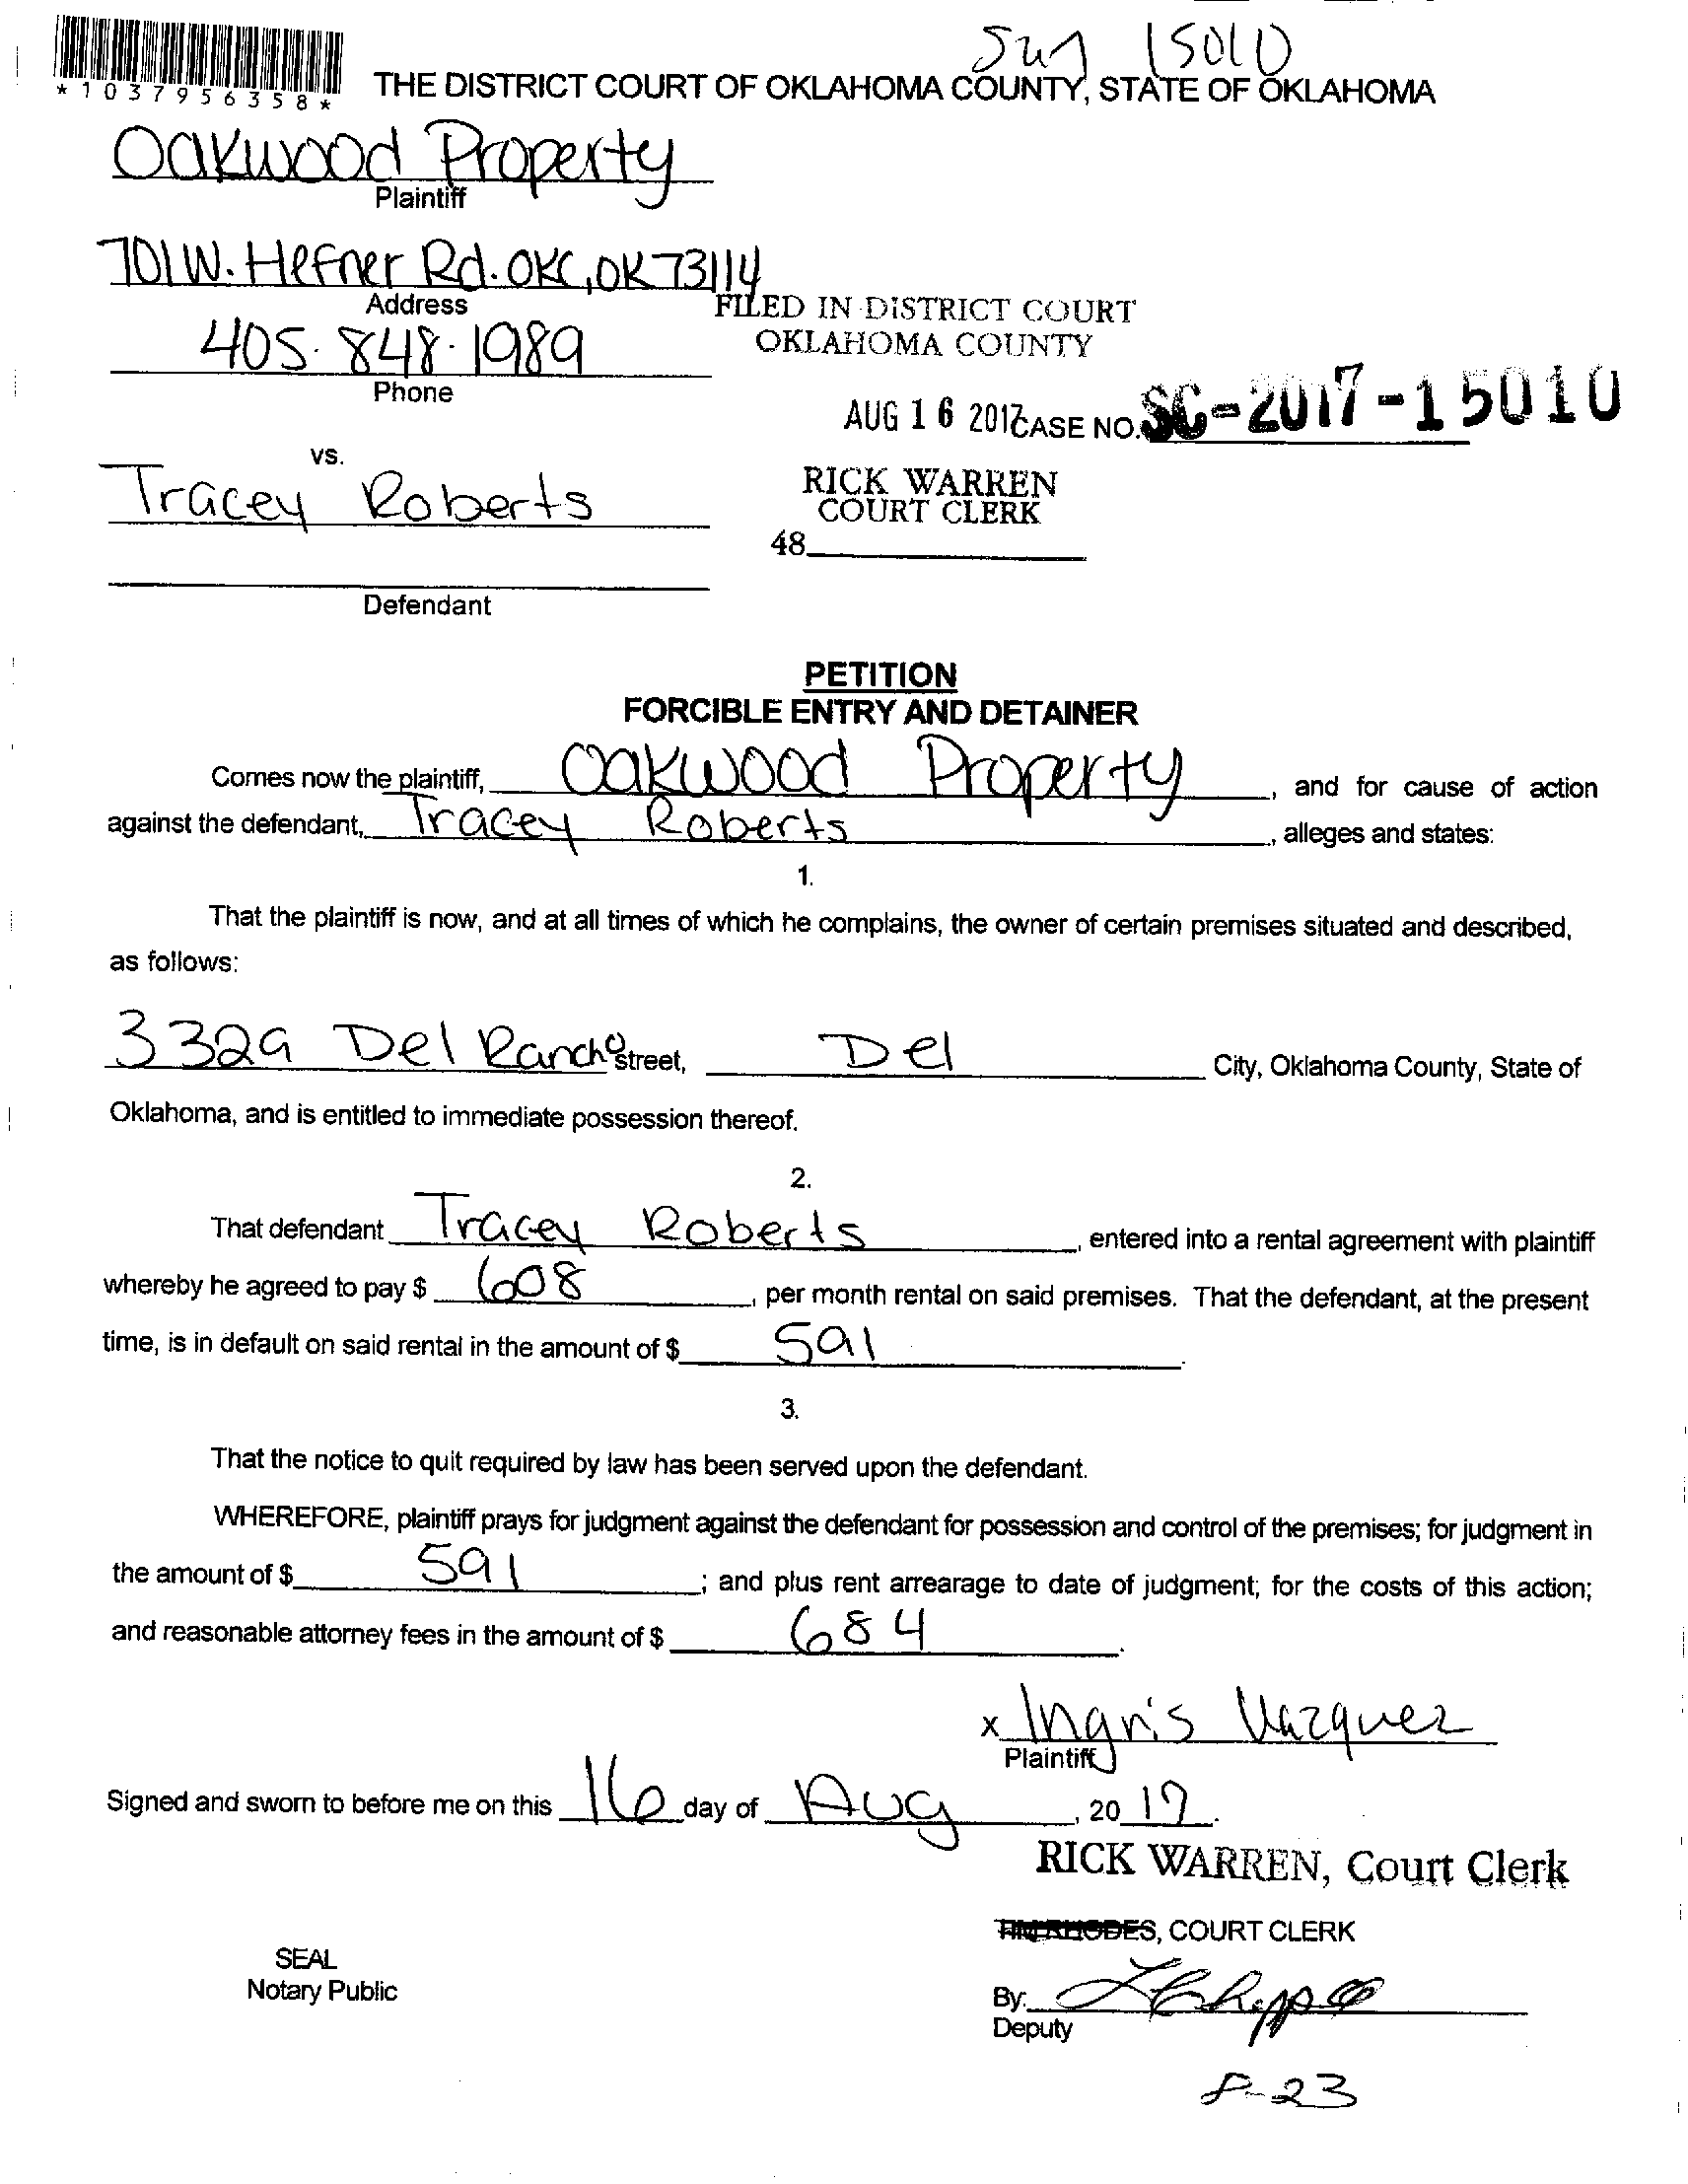 15010
*1037956358*
THE DISTRICT COURT OF OKLAHOMA COUNTY, STATE OF OKLAHOMA
Oakwood Property
Plaintiff
701 W. Hefner Rd. OKC, OK 73114
Address
FILED IN DISTRICT COURT
OKLAHOMA COUNTY
405.848.1989
Phone
AUG 16 2017 CASE NO. SC-2017-15010
vs.
Tracey Roberts
RICK WARREN
COURT CLERK
48
Defendant
PETITION
FORCIBLE ENTRY AND DETAINER
Comes now the plaintiff, Oakwood Property, and for cause of action
against the defendant, Tracey Roberts, alleges and states:
1.
That the plaintiff is now, and at all times of which he complains, the owner of certain premises situated and described,
as follows:
3329 Del Rancho Street, Del City, Oklahoma County, State of
Oklahoma, and is entitled to immediate possession thereof.
2.
That defendant Tracey Roberts, entered into a rental agreement with plaintiff
whereby he agreed to pay $ 608, per month rental on said premises. That the defendant, at the present
time, is in default on said rental in the amount of $ 591.
3.
That the notice to quit required by law has been served upon the defendant.
WHEREFORE, plaintiff prays for judgment against the defendant for possession and control of the premises; for judgment in
the amount of $ 591; and plus rent arrearage to date of judgment; for the costs of this action;
and reasonable attorney fees in the amount of $ 684.
x Ingris Vazquez
Plaintiff
Signed and sworn to before me on this 16 day of Aug, 20 17.
RICK WARREN, Court Clerk
TIM RHODES, COURT CLERK
SEAL
Notary Public
By:
Deputy
8-23